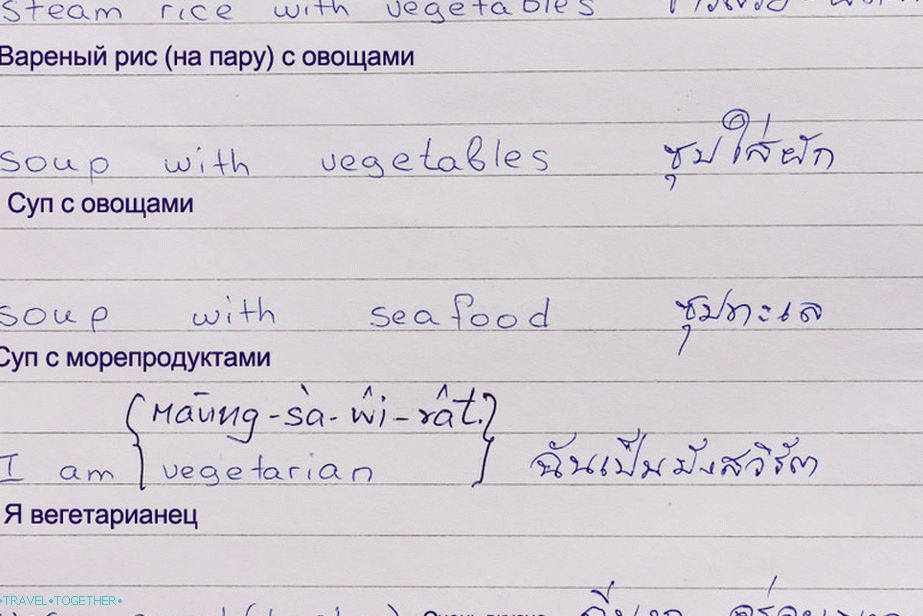 Steam rice with vegetables
Вареный рис (на пару) с овощами
soup with vegetables ซุปใส่ผัก
Суп с овощами
soup with seafood ซุปทะเล
Суп с морепродуктами
(маūng-sà-ŵi-rât.)
I am vegetarian ฉันเป็นมังสวิรัต
Я вегетарианец
•TRAVEL•TOGETHER•